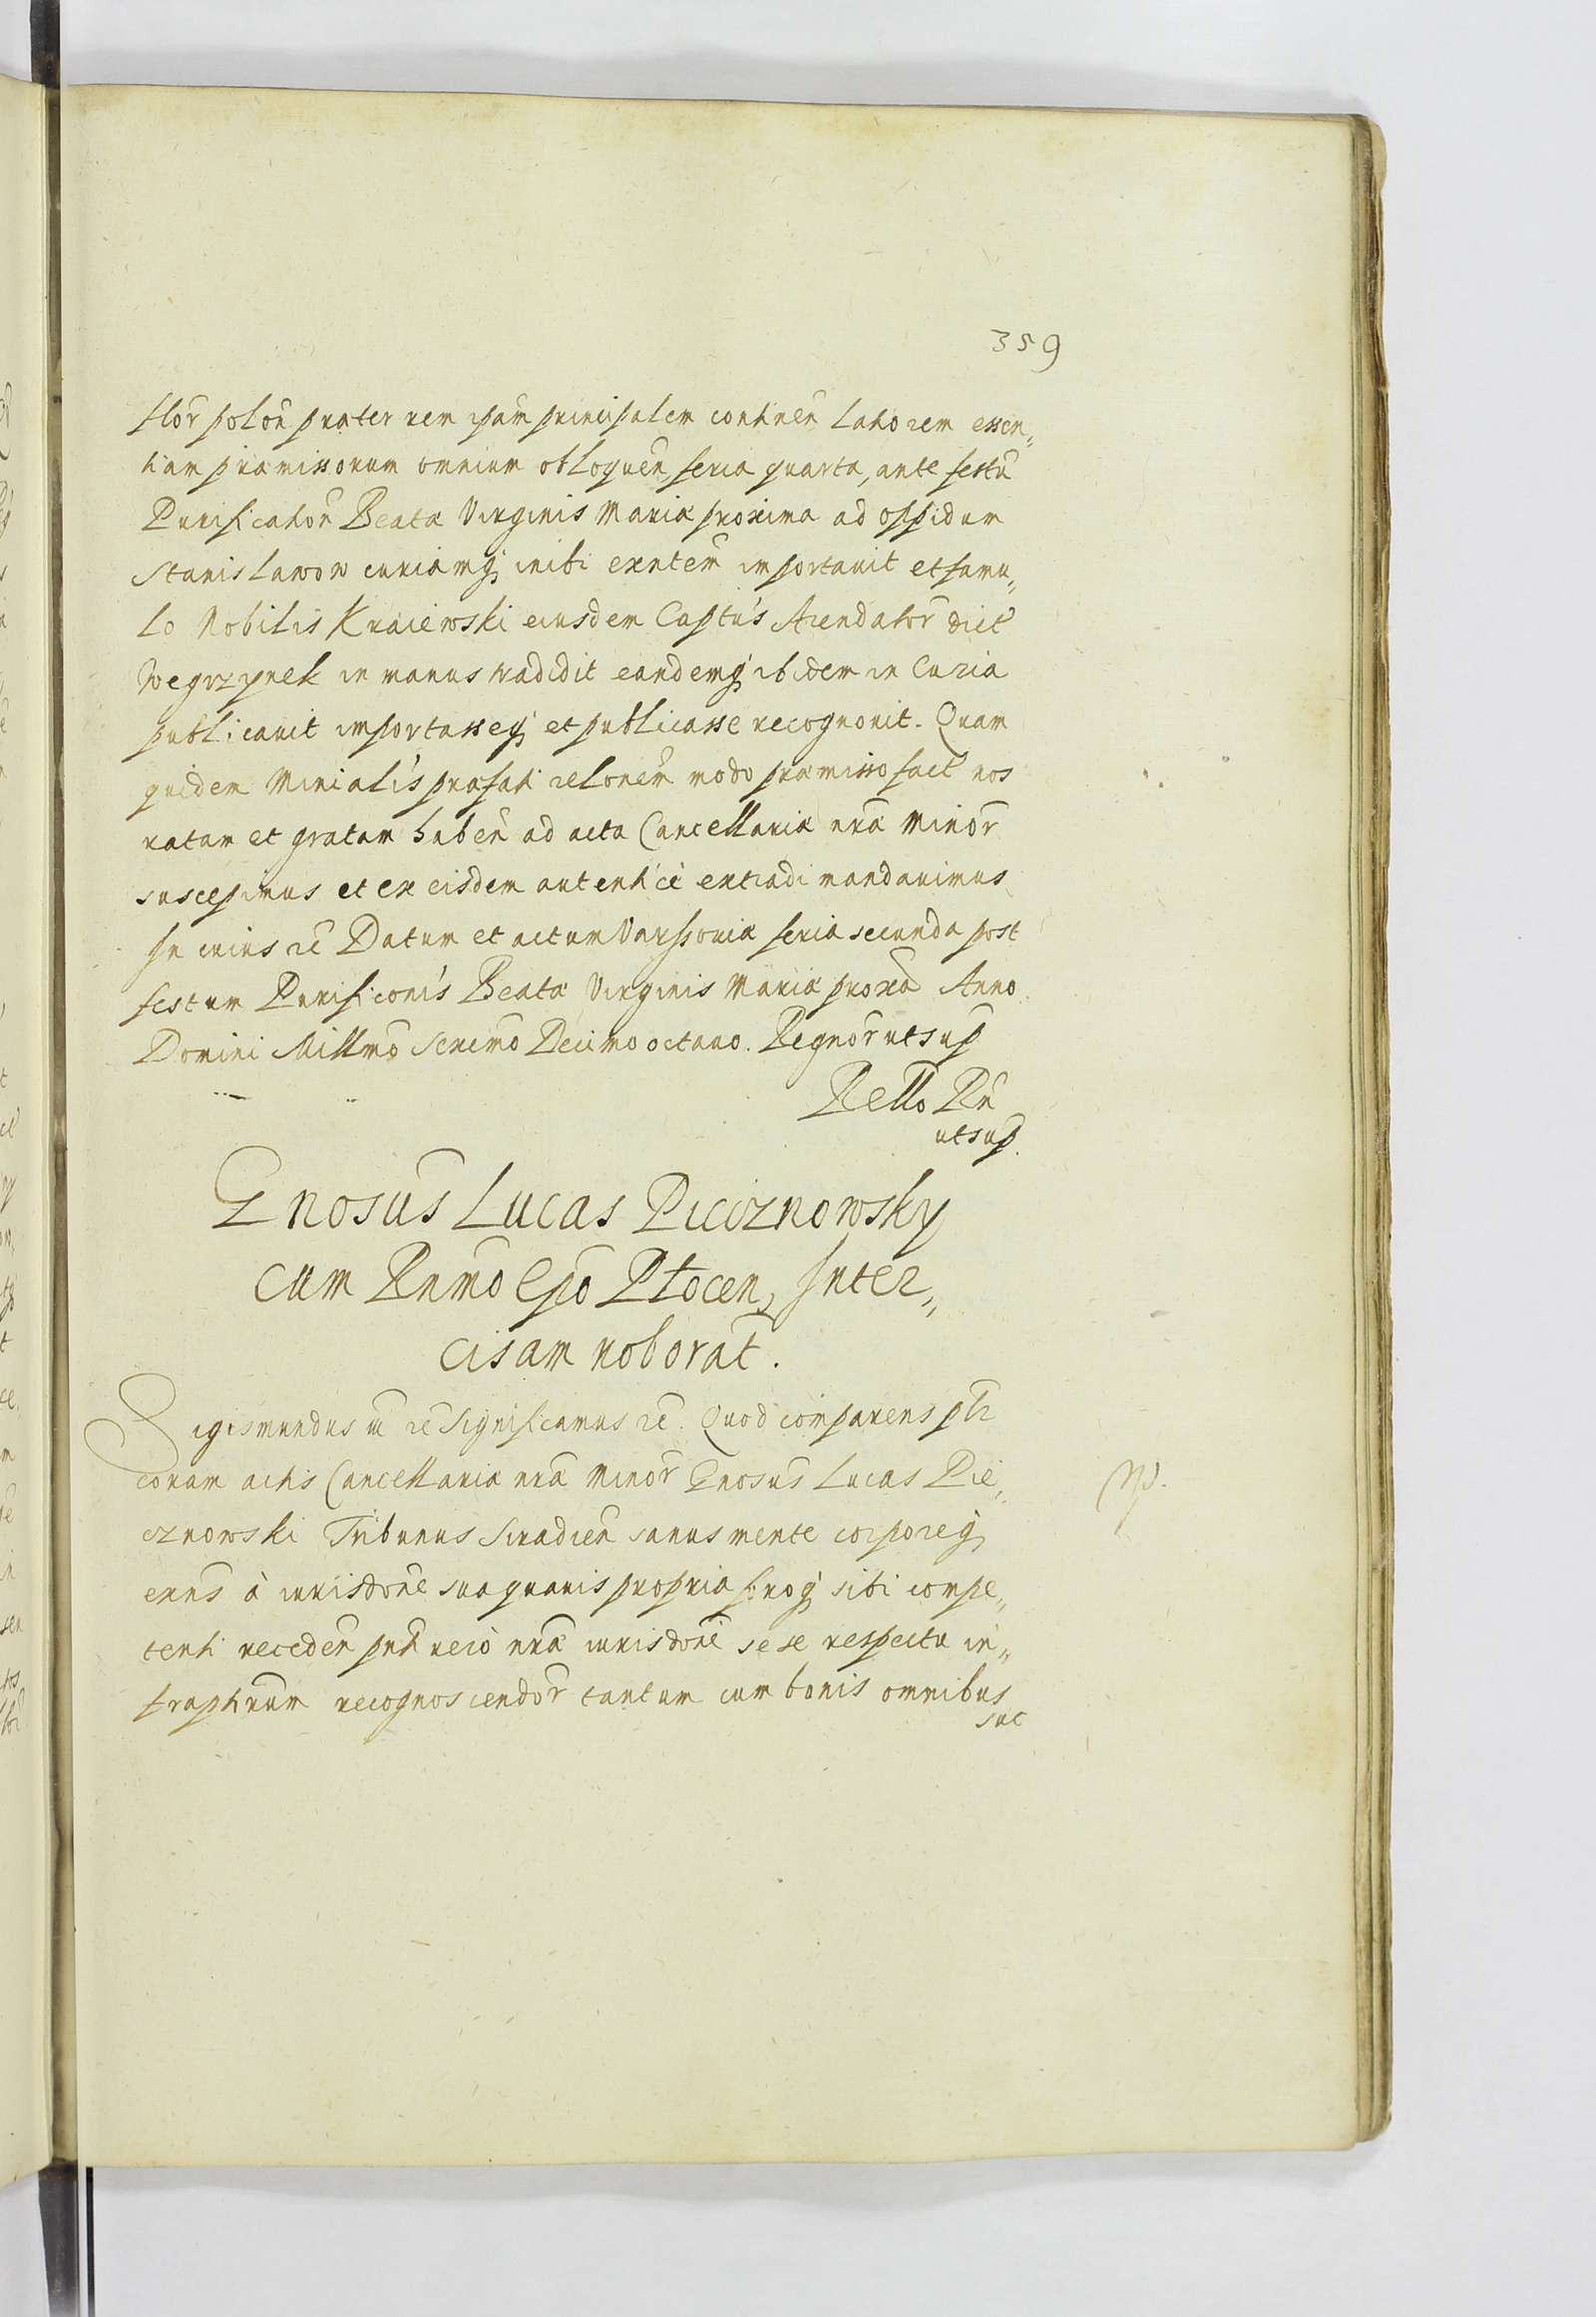 359
flor polon præter rem ipam principalem continen latiorem essen„
tiam præmissorum omnium obloquen, feria quarta, ante festu
Purification Beatæ Virginis Mariæ proxima ad oppidum
Stanislawow curiamq inibi exntem importauit et famu„
lo Nobilis Kraiewski eiusdem Captus Arendator dict
Wegrzynek in manus tradidit eandemq ibidem in Curia
publicauit importasseq et publicasse recognouit. Quam
quidem Minialis præfati relonem modo præmisso fact nos
ratam et gratam haben ad acta Cancellariæ nræ Minor
suscepimus et ex eisdem autentice extradi mandauimus
In cuius re Datum et actum Varssouiæ feria secunda post
festum Purificonis Beatæ Virginis Mariæ proxa Anno
Domini Millmo Sexcmo Decimo octauo. Regnor ut sup
Rello Rn
ut sup.
Gnosus Lucas Piecznowsky
cum Rnmo Epo Płocen, Inter„
cisam roborat.
Sigismundus III re Significamus re. Quod comparens pltr
coram actis Cancellariæ nræ Minor Gnosus Lucas Pie„
cznowski Tribunus Siradien sanus mente corporeq
exns à iurisdone sua quauis propria foroq sibi compe„
tenti receden pnti vero nræ iurisdoni sese respectu in„
frapturum recognoscendor tantum cum bonis omnibus
suc